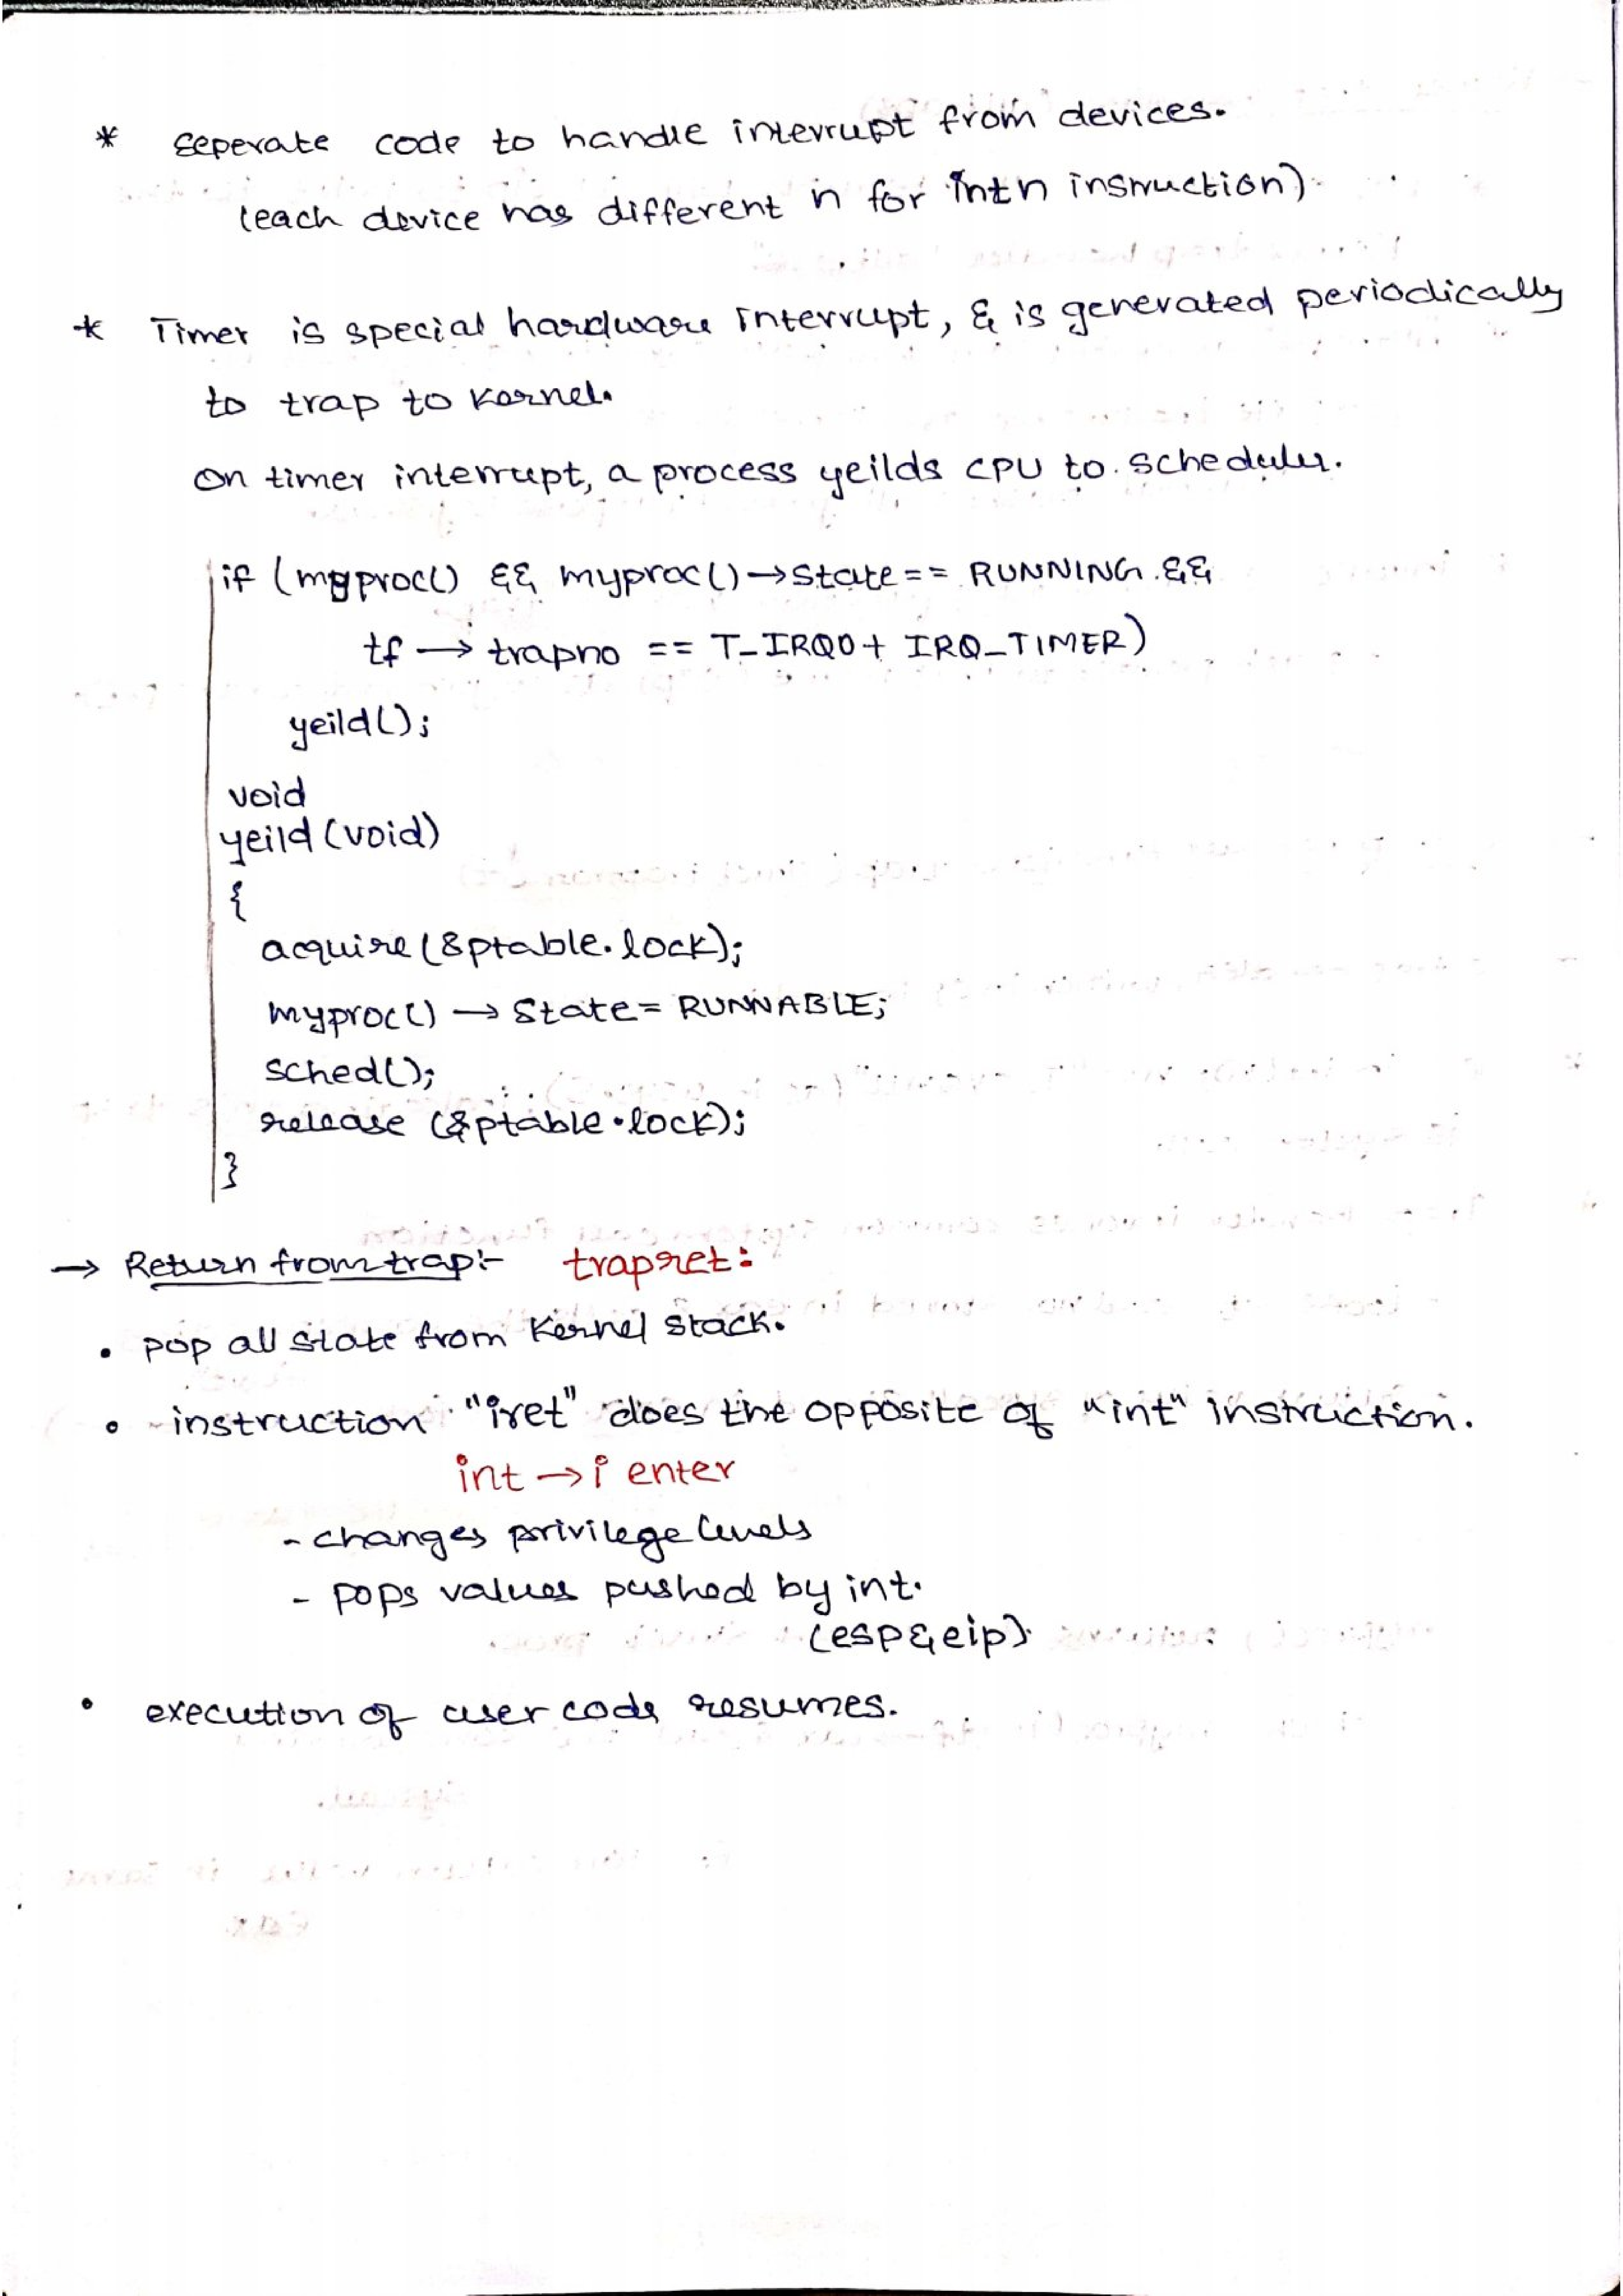 * seperate code to handle interrupt from devices.
(each device has different n for int n instruction)
* Timer is special hardware interrupt, & is generated periodically
to trap to kernel.
on timer interrupt, a process yeilds CPU to scheduler.
if (myproc() && myproc()→state == RUNNING &&
tf → trapno == T_IRQ0 + IRQ_TIMER)
yeild();
void
yeild (void)
{
acquire (&ptable.lock);
myproc() → state = RUNNABLE;
sched();
release (&ptable.lock);
}
→ Return from trap:- trapret:
• pop all state from Kernel stack.
• instruction "iret" does the opposite of "int" instruction.
int → i enter
- changes privilege levels
- pops values pushed by int.
(esp & eip)
• execution of user code resumes.